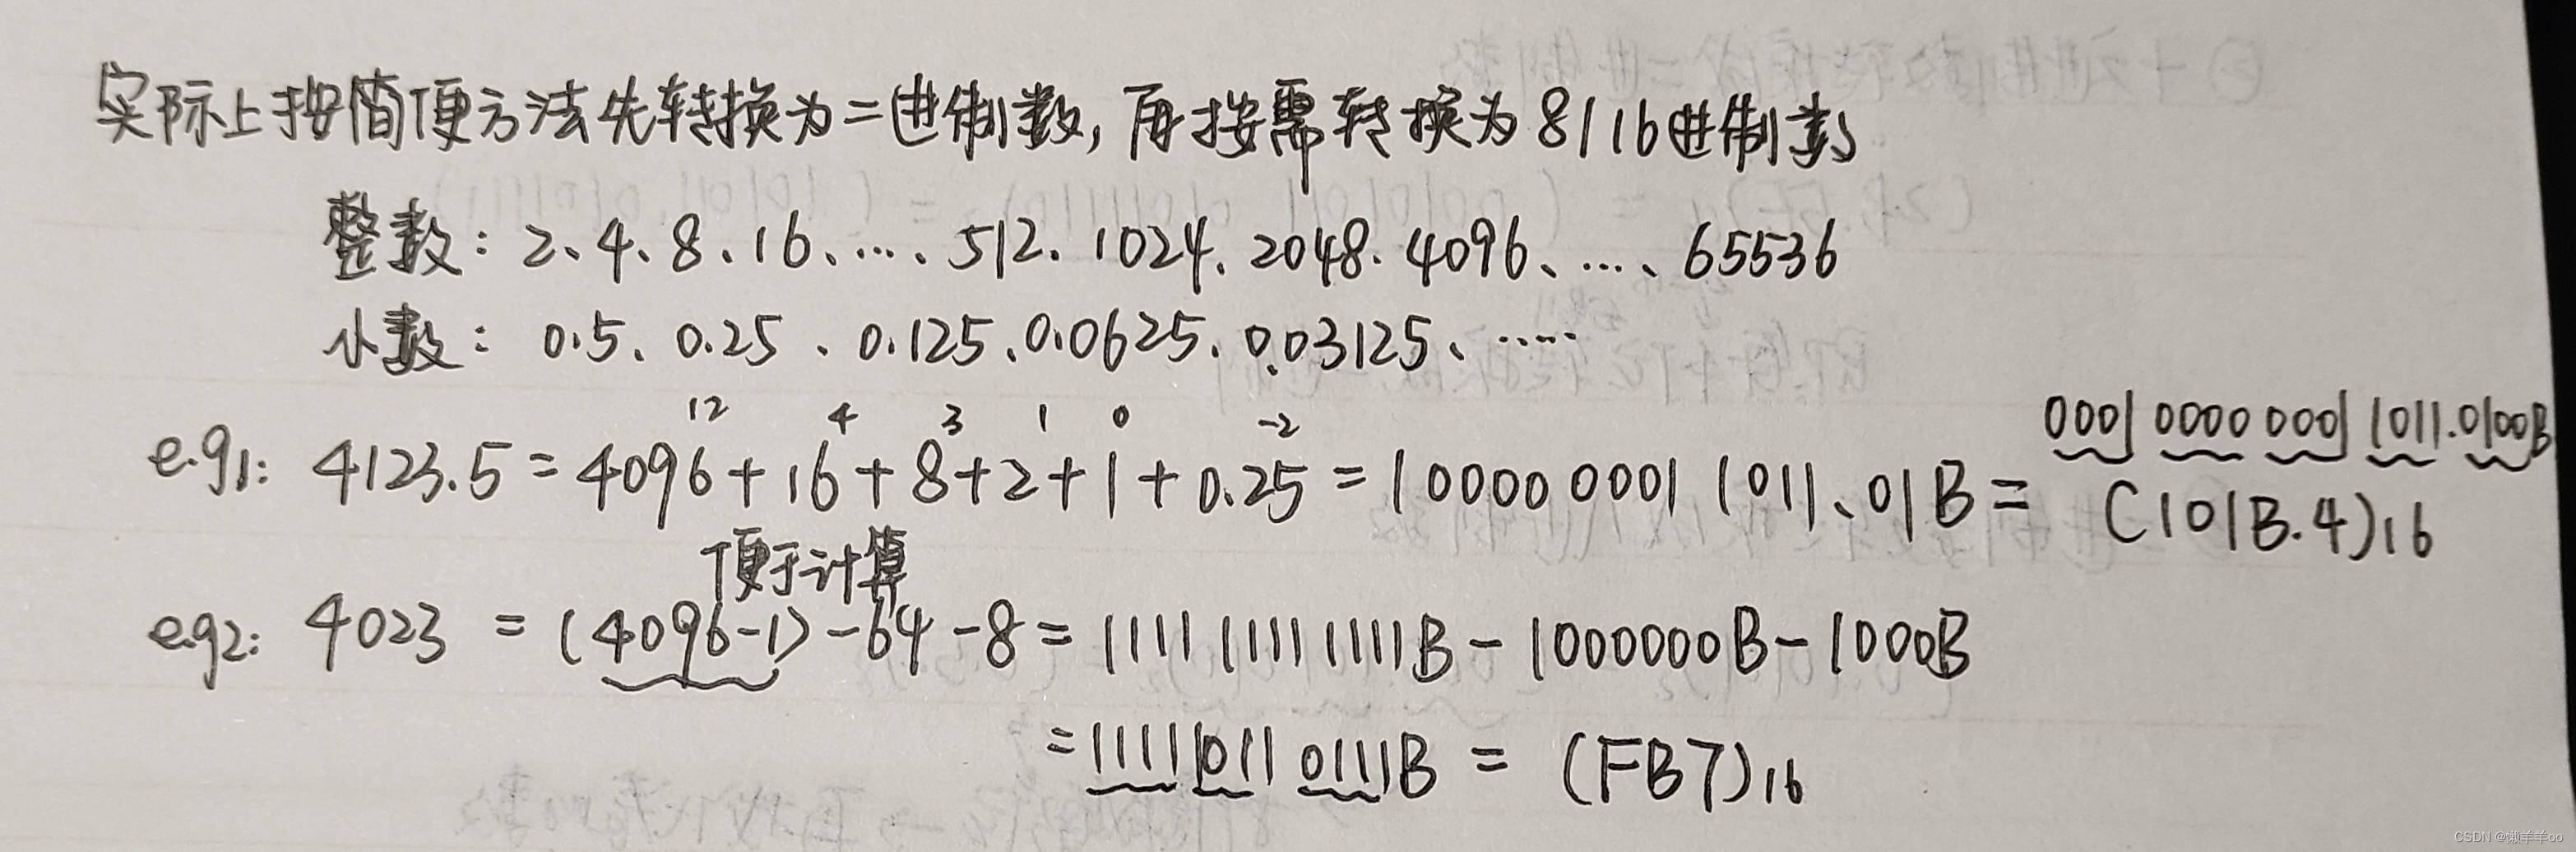 实际上按简便方法先转换为二进制数,再按需转换为8/16进制数
整数:2、4、8、16、…、512、1024、2048、4096、…、65536
小数:0.5、0.25、0.125、0.0625、0.03125、……
12 4 3 1 0 -2
0001 0000 0001 1011.0100B
e.g1: 4123.5=4096+16+8+2+1+0.25=10000 0001 1011.01B=
(101B.4)16
便于计算
e.g2: 4023 = (4096-1)-64-8=1111 1111 1111B-1000000B-1000B
=1111 1011 0111B = (FB7)16
CSDN @懒羊羊oo